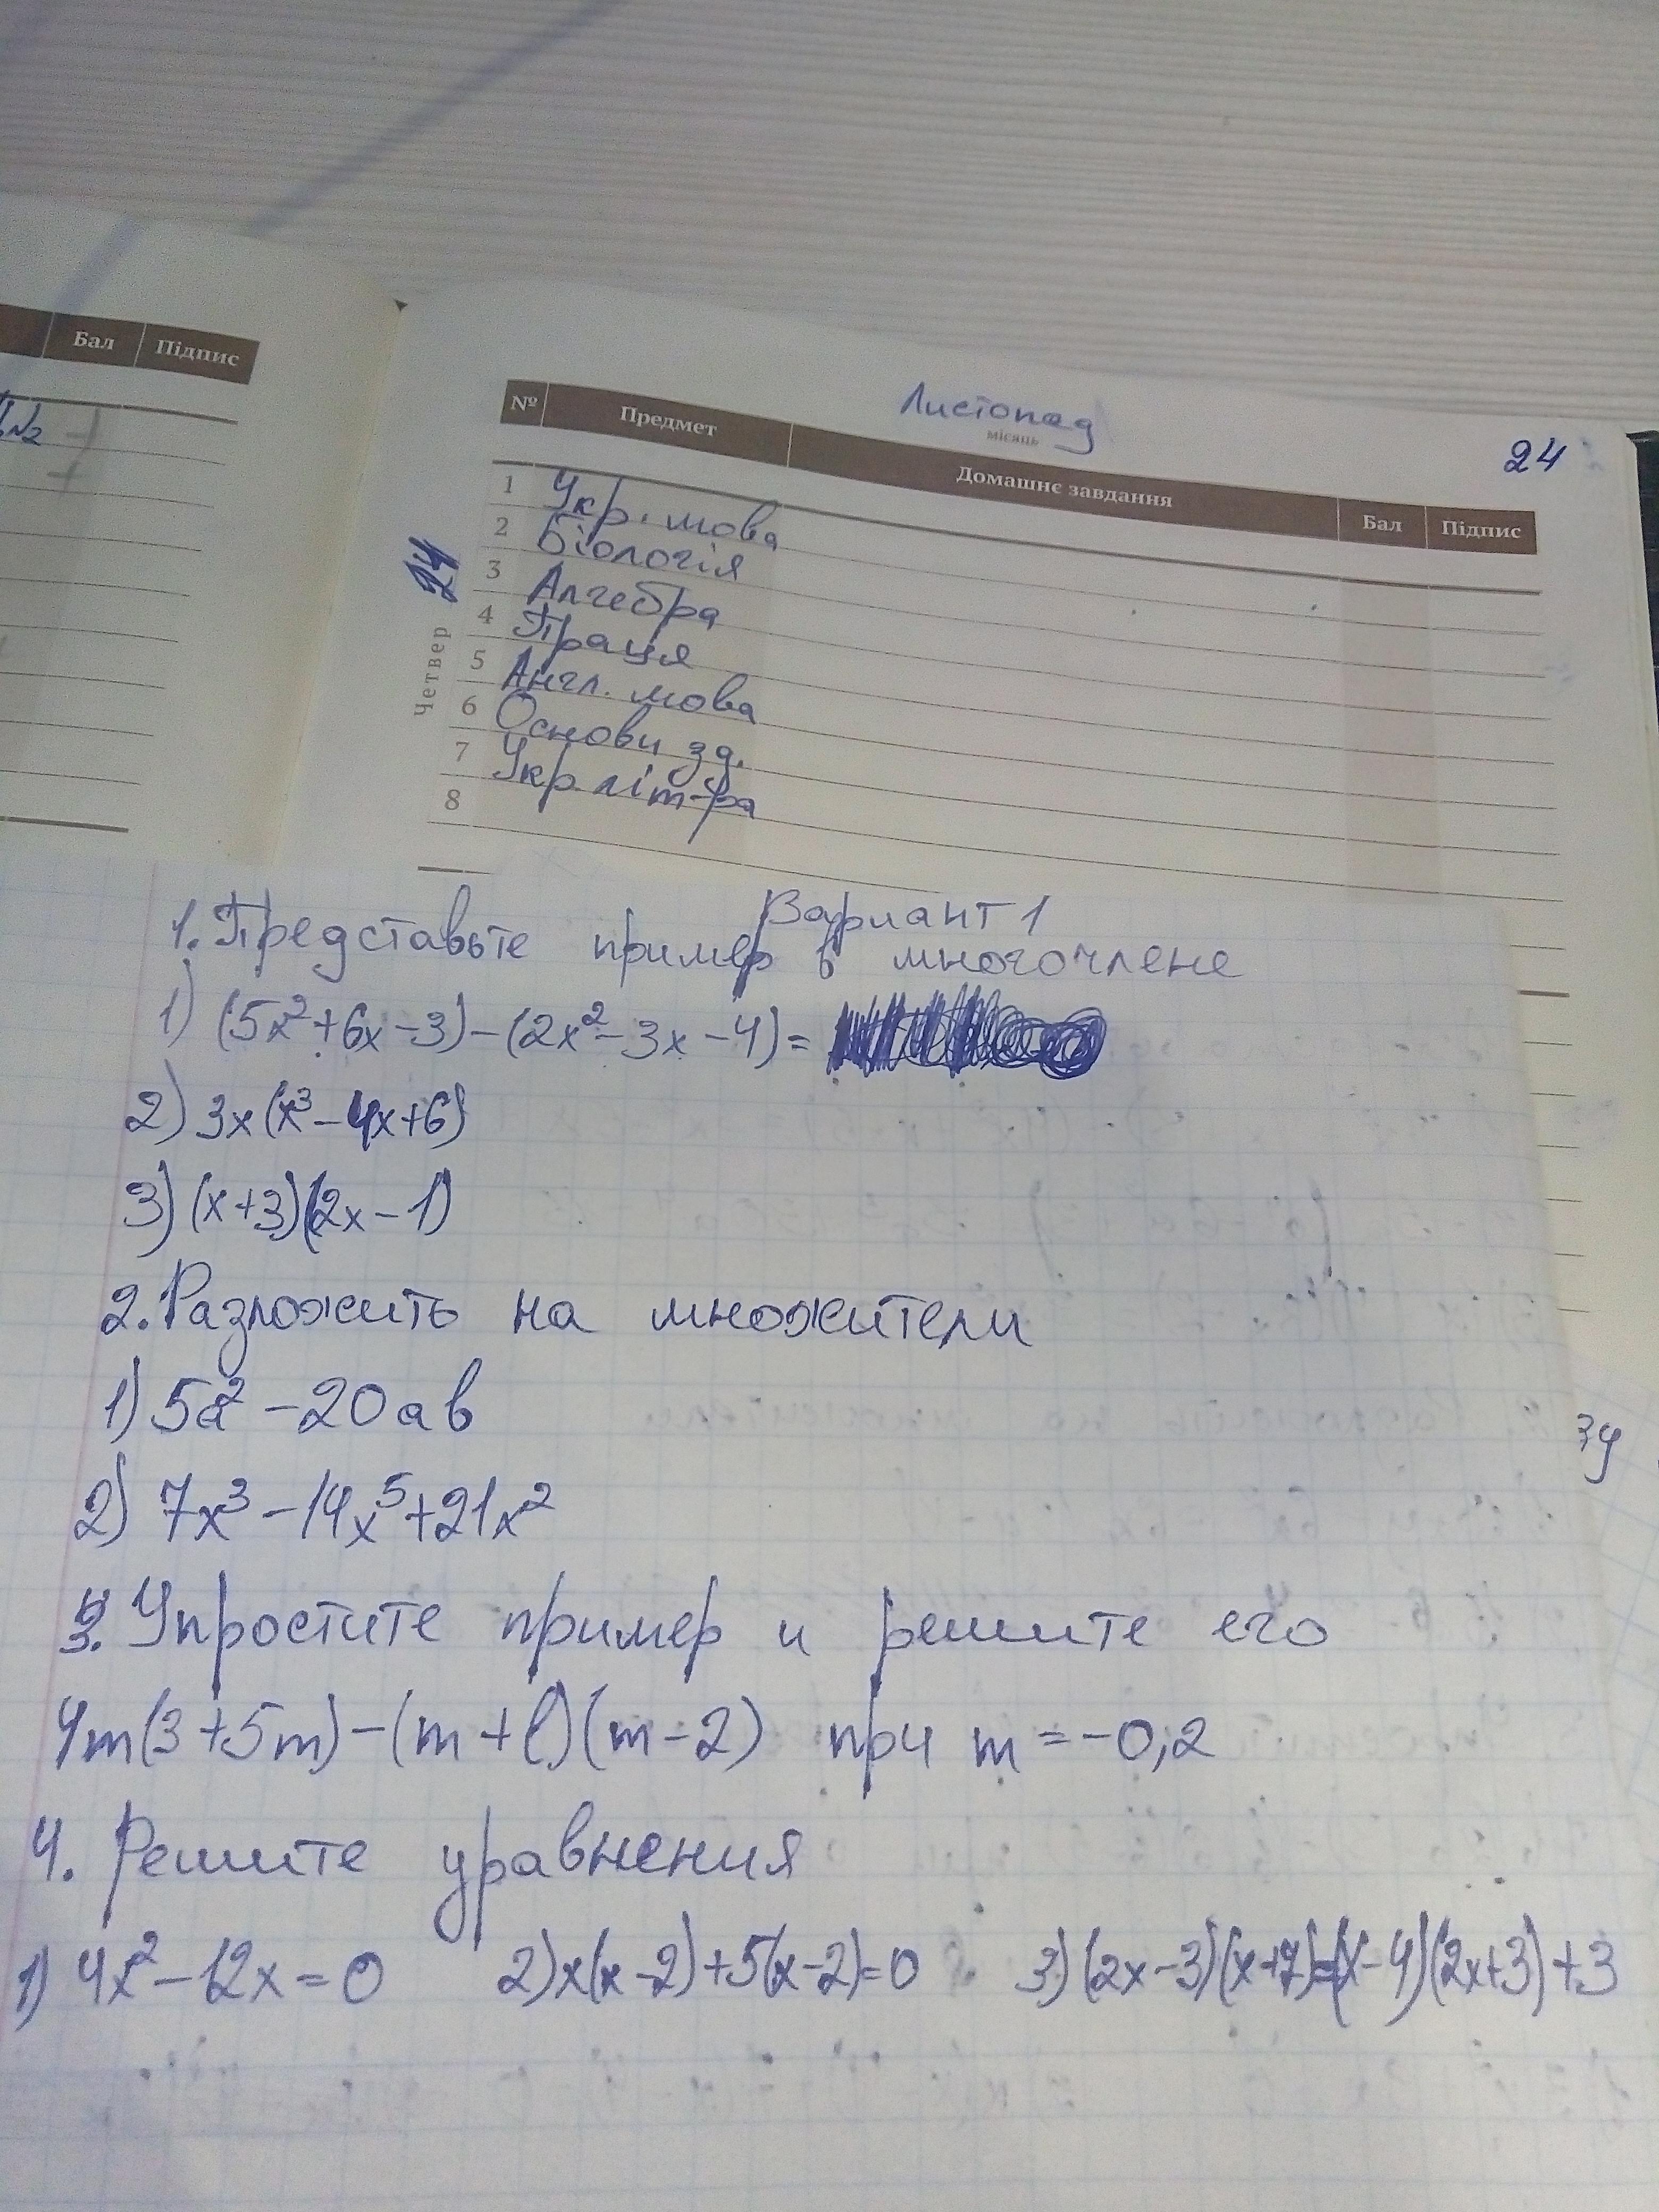 Бал Підпис
№2
Листопад
місяць
24
№ Предмет Домашнє завдання Бал Підпис
24
Четвер
1 Укр. мова
2 Біологія
3 Алгебра
4 Праця
5 Англ. мова
6 Основи зд.
7 Укр. літ-ра
8
Вариант 1
1. Представьте пример в многочлене
1) (5x²+6x-3)-(2x²-3x-4)=
2) 3x(x³-4x+6)
3) (x+3)(2x-1)
2. Разложить на множители
1) 5a²-20ab
2) 7x³-14x⁵+21x²
3. Упростите пример и решите его
4m(3+5m)-(m+l)(m-2) при m=-0,2
4. Решите уравнения
1) 4x²-12x=0 2) x(x-2)+5(x-2)=0 3) (2x-3)(x+7)=(x-4)(2x+3)+3